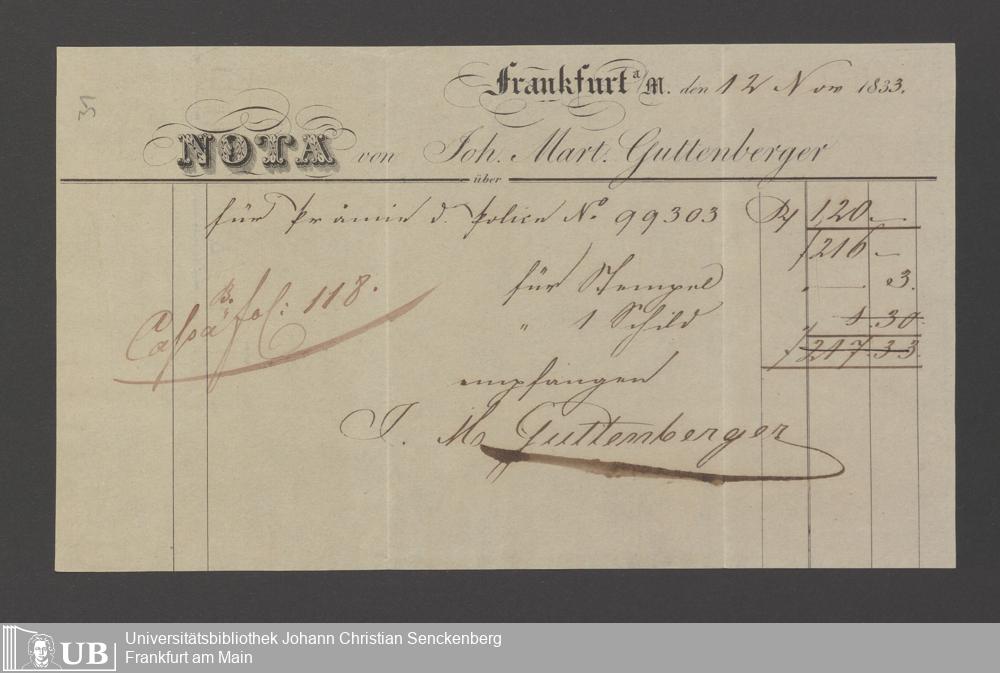 35
Frankfurt a M. den 12 Nov 1833.
NOTA von Joh. Mart. Guttenberger
über
für Prämie d. Police No. 99303 120.—
f 216 —
für Stempel „ — . 3.
„ 1 Schild „ 1.30.
f 217.33
Cassa B. fol: 118.
empfangen
J. M. Guttenberger
UB Universitätsbibliothek Johann Christian Senckenberg
Frankfurt am Main